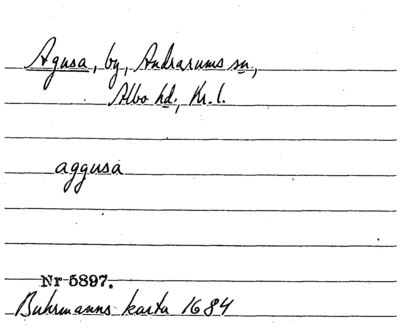 Agusa, by, Andrarums sn.,
Albo hd., Kr. l.
aggusa
Nr 5897.
Buhrmanns karta 1684